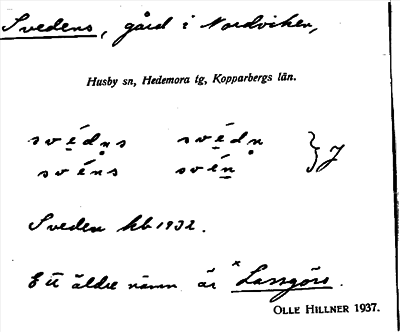 Svedens, gård i Nordviken,
Husby sn, Hedemora tg, Kopparbergs län.
své̱dn̥s své̱dn̥ } J
své̱ns svén̲
Sveden kb 1932.
Ett äldre namn är ˣLassgörs.
OLLE HILLNER 1937.